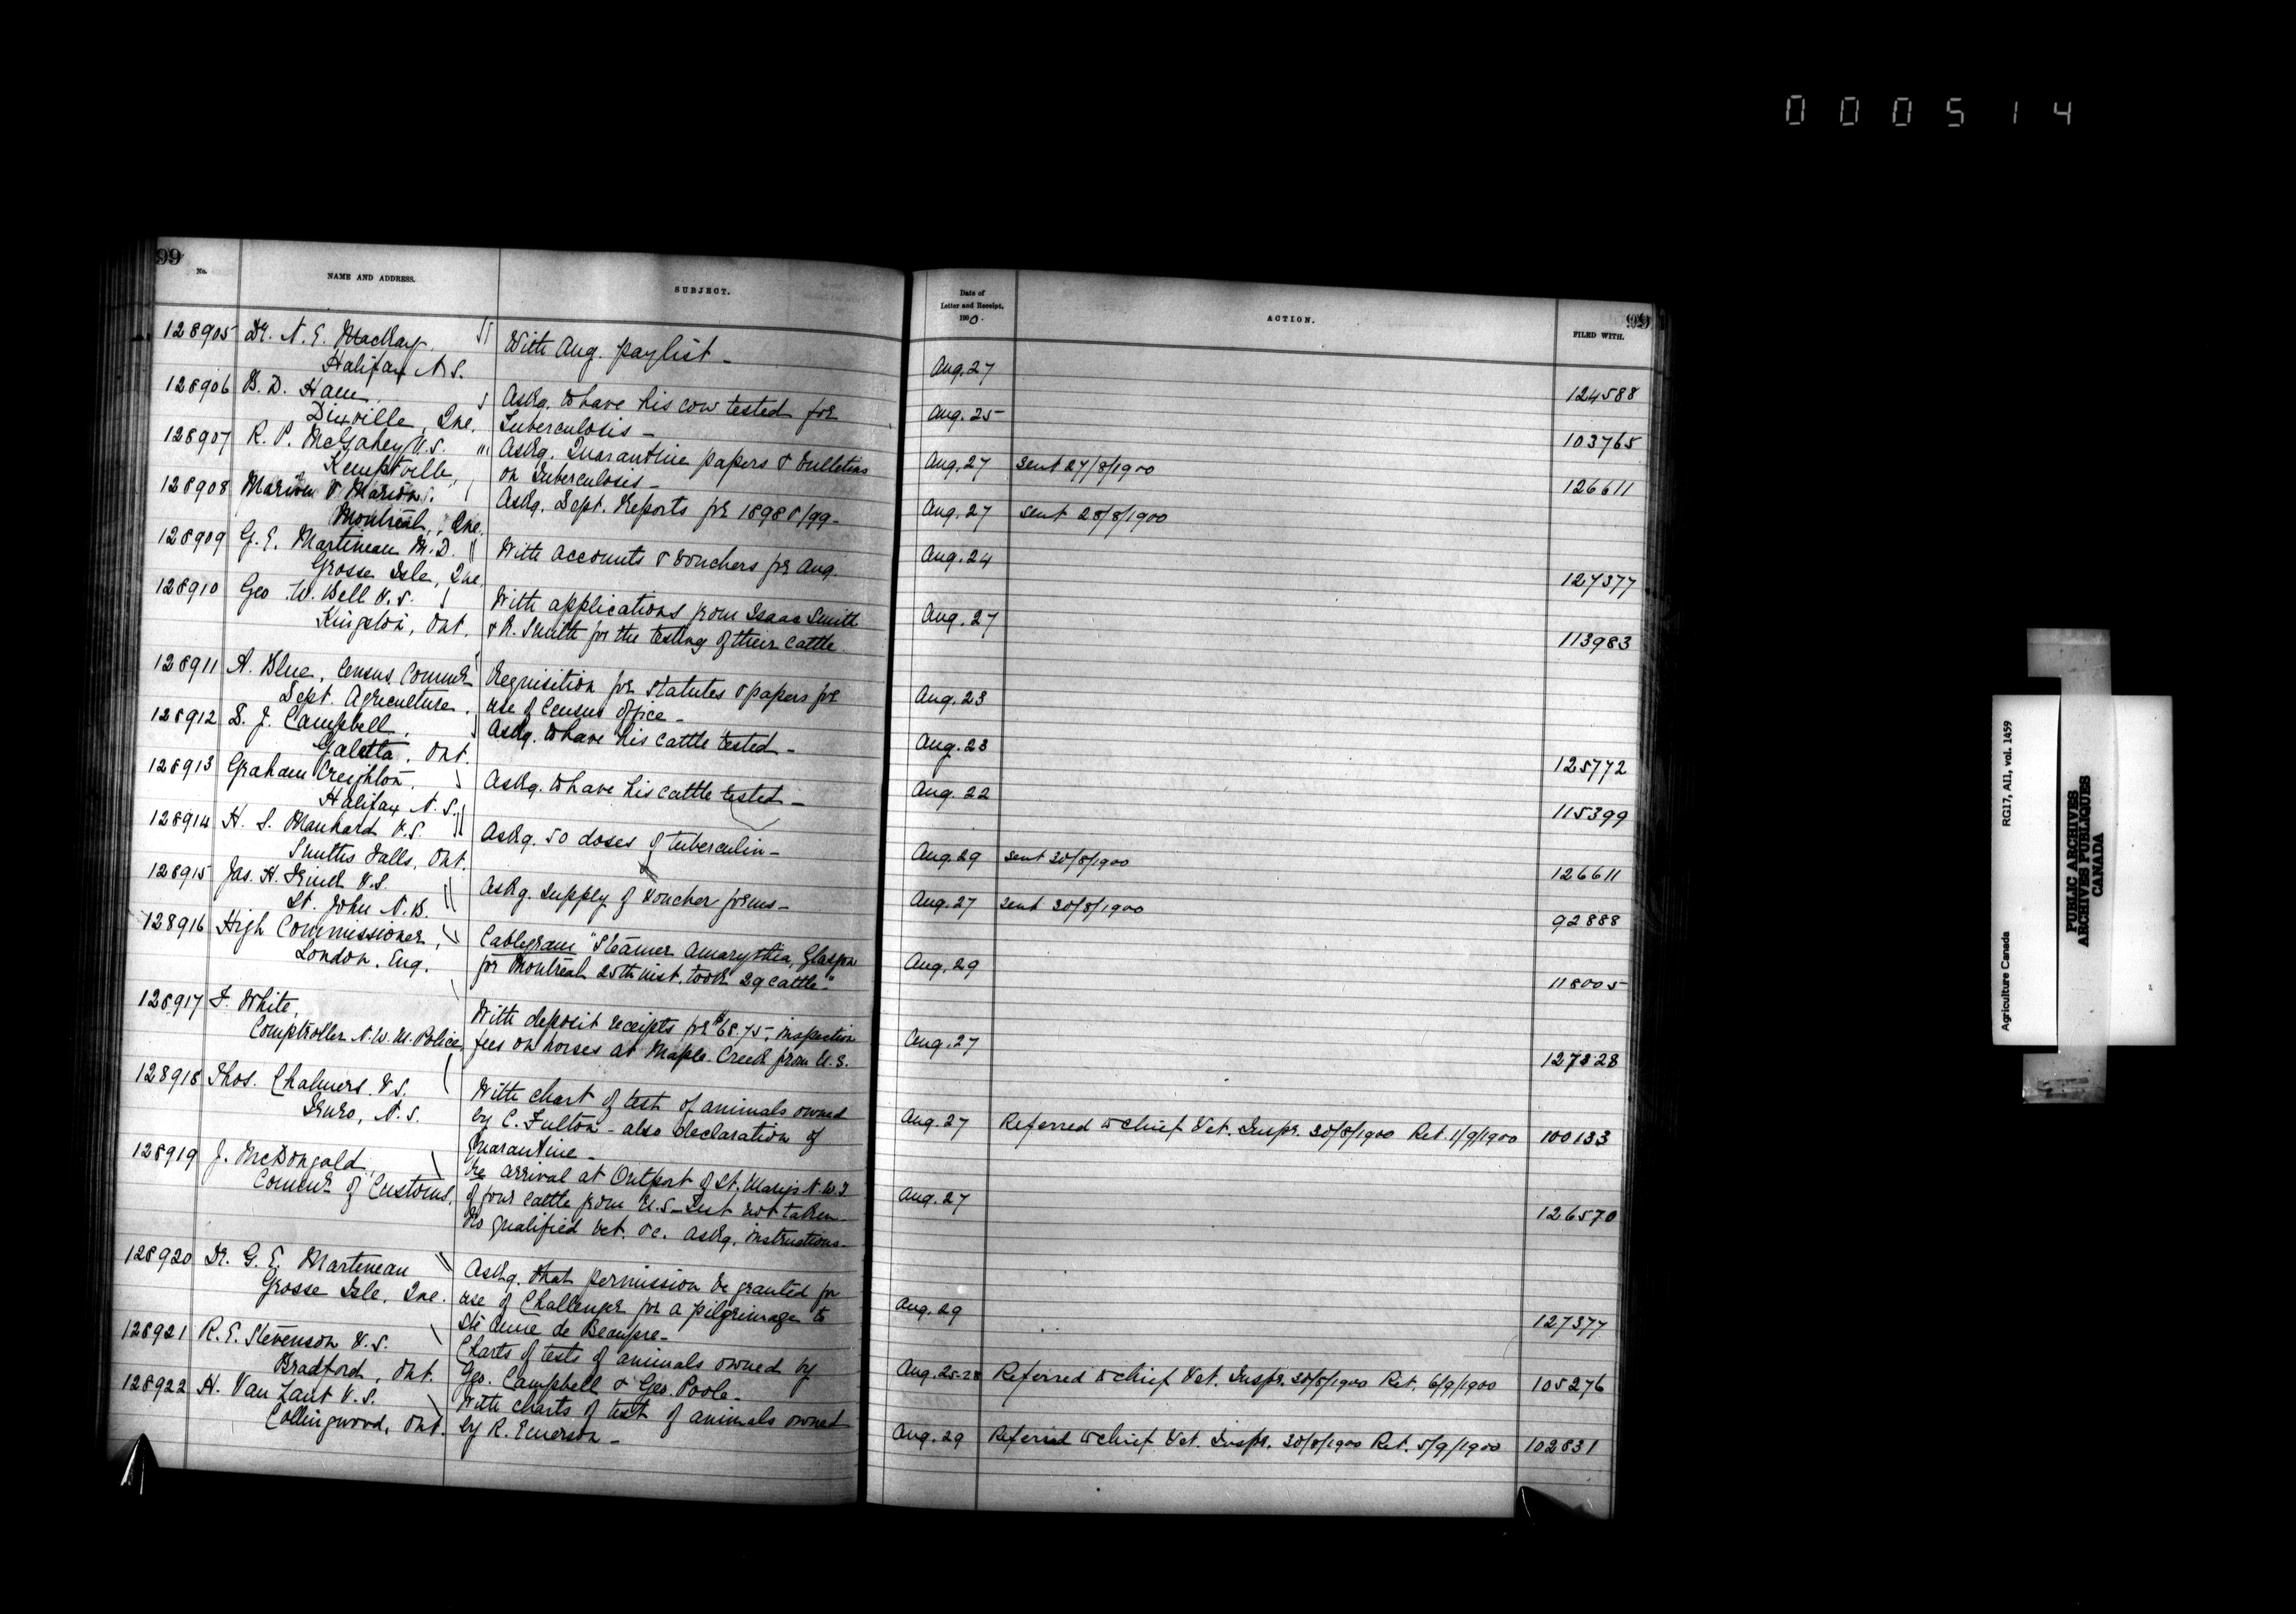 000514
99
No.
NAME AND ADDRESS.
SUBJECT.
128905 Dr. N. E. MacKay. With Aug. paylist -
Halifax N.S.
128906 B. D. Ham Askg. to have his cow tested for
Dixville, Que. Tuberculosis -
128907 R. P. McGahey V.S. " Askg. Quarantine papers & bulletins
Kemptville, on Tuberculosis -
128908 Marion & Marion. Askg. Dept. Reports for 1898 & /99 -
Montreal, Que.
128909 G. E. Martineau M.D. With accounts & vouchers for Aug.
Grosse Isle, Que.
128910 Geo. W. Bell V.S. With applications from Isaac Smith
Kingston, Ont. & R. Smith for the testing of their cattle
128911 A. Blue, Census Commr Requisition for Statutes & papers for
Dept. Agriculture. use of Census office -
128912 S. J. Campbell. Askg. to have his cattle tested -
Galetta, Ont.
128913 Graham Creighton, Askg. to have his cattle tested -
Halifax, N.S.
128914 H. S. Manhard V.S. Askg. 50 doses of tuberculin -
Smiths Falls, Ont.
128915 Jas. H. Frink V.S. Askg. supply of Voucher forms -
St. John N.B.
128916 High Commissioner, Cablegram "Steamer Amarynthia, Glasgow
London. Eng. for Montreal 25th inst. took 29 cattle"
128917 F. White, With deposit receipts for $68.75, inspection
Comptroller N.W.M. Police fees on horses at Maple Creek from U.S.
128918 Thos. Chalmers V.S. With chart of test of animals owned
Truro, N.S. by C. Fulton - also declaration of
Quarantine -
128919 J. McDougald, Re arrival at Outport of St. Marys N.W.T
Commr of Customs. of four cattle from U.S - Test not taken
No qualified Vet. &c. Askg. instructions -
128920 Dr. G. E. Martineau Askg. that permission be granted for
Grosse Isle, Que. use of Challenger for a pilgrimage to
Ste Anne de Beaupre -
128921 R. E. Stevenson V.S. Charts of tests of animals owned by
Bradford, Ont. Geo. Campbell & Geo. Poole -
128922 H. Van Zant V.S. With charts of test of animals owned
Collingwood, Ont. by R. Emerson -
99
Date of
Letter and Receipt,
1900.
ACTION.
FILED WITH.
Aug. 27 124588
Aug. 25 103765
Aug. 27 sent 27/8/1900 126611
Aug. 27 sent 28/8/1900
Aug. 24 127377
Aug. 27 113983
Aug. 23
Aug. 23 125772
Aug. 22 115399
Aug. 29 sent 30/8/1900 126611
Aug. 27 sent 30/8/1900 92888
Aug. 29 118005
Aug. 27 127328
Aug. 27 Referred to Chief Vet. Inspr. 30/8/1900 Ret. 1/9/1900 100133
Aug. 27 126570
Aug. 29 127377
Aug. 25-28 Referred to Chief Vet. Inspr. 30/8/1900 Ret. 6/9/1900 105276
Aug. 29 Referred to Chief Vet. Inspr. 30/8/1900 Ret. 5/9/1900 102831
Agriculture Canada RG17, AII, vol. 1459
PUBLIC ARCHIVES
ARCHIVES PUBLIQUES
CANADA